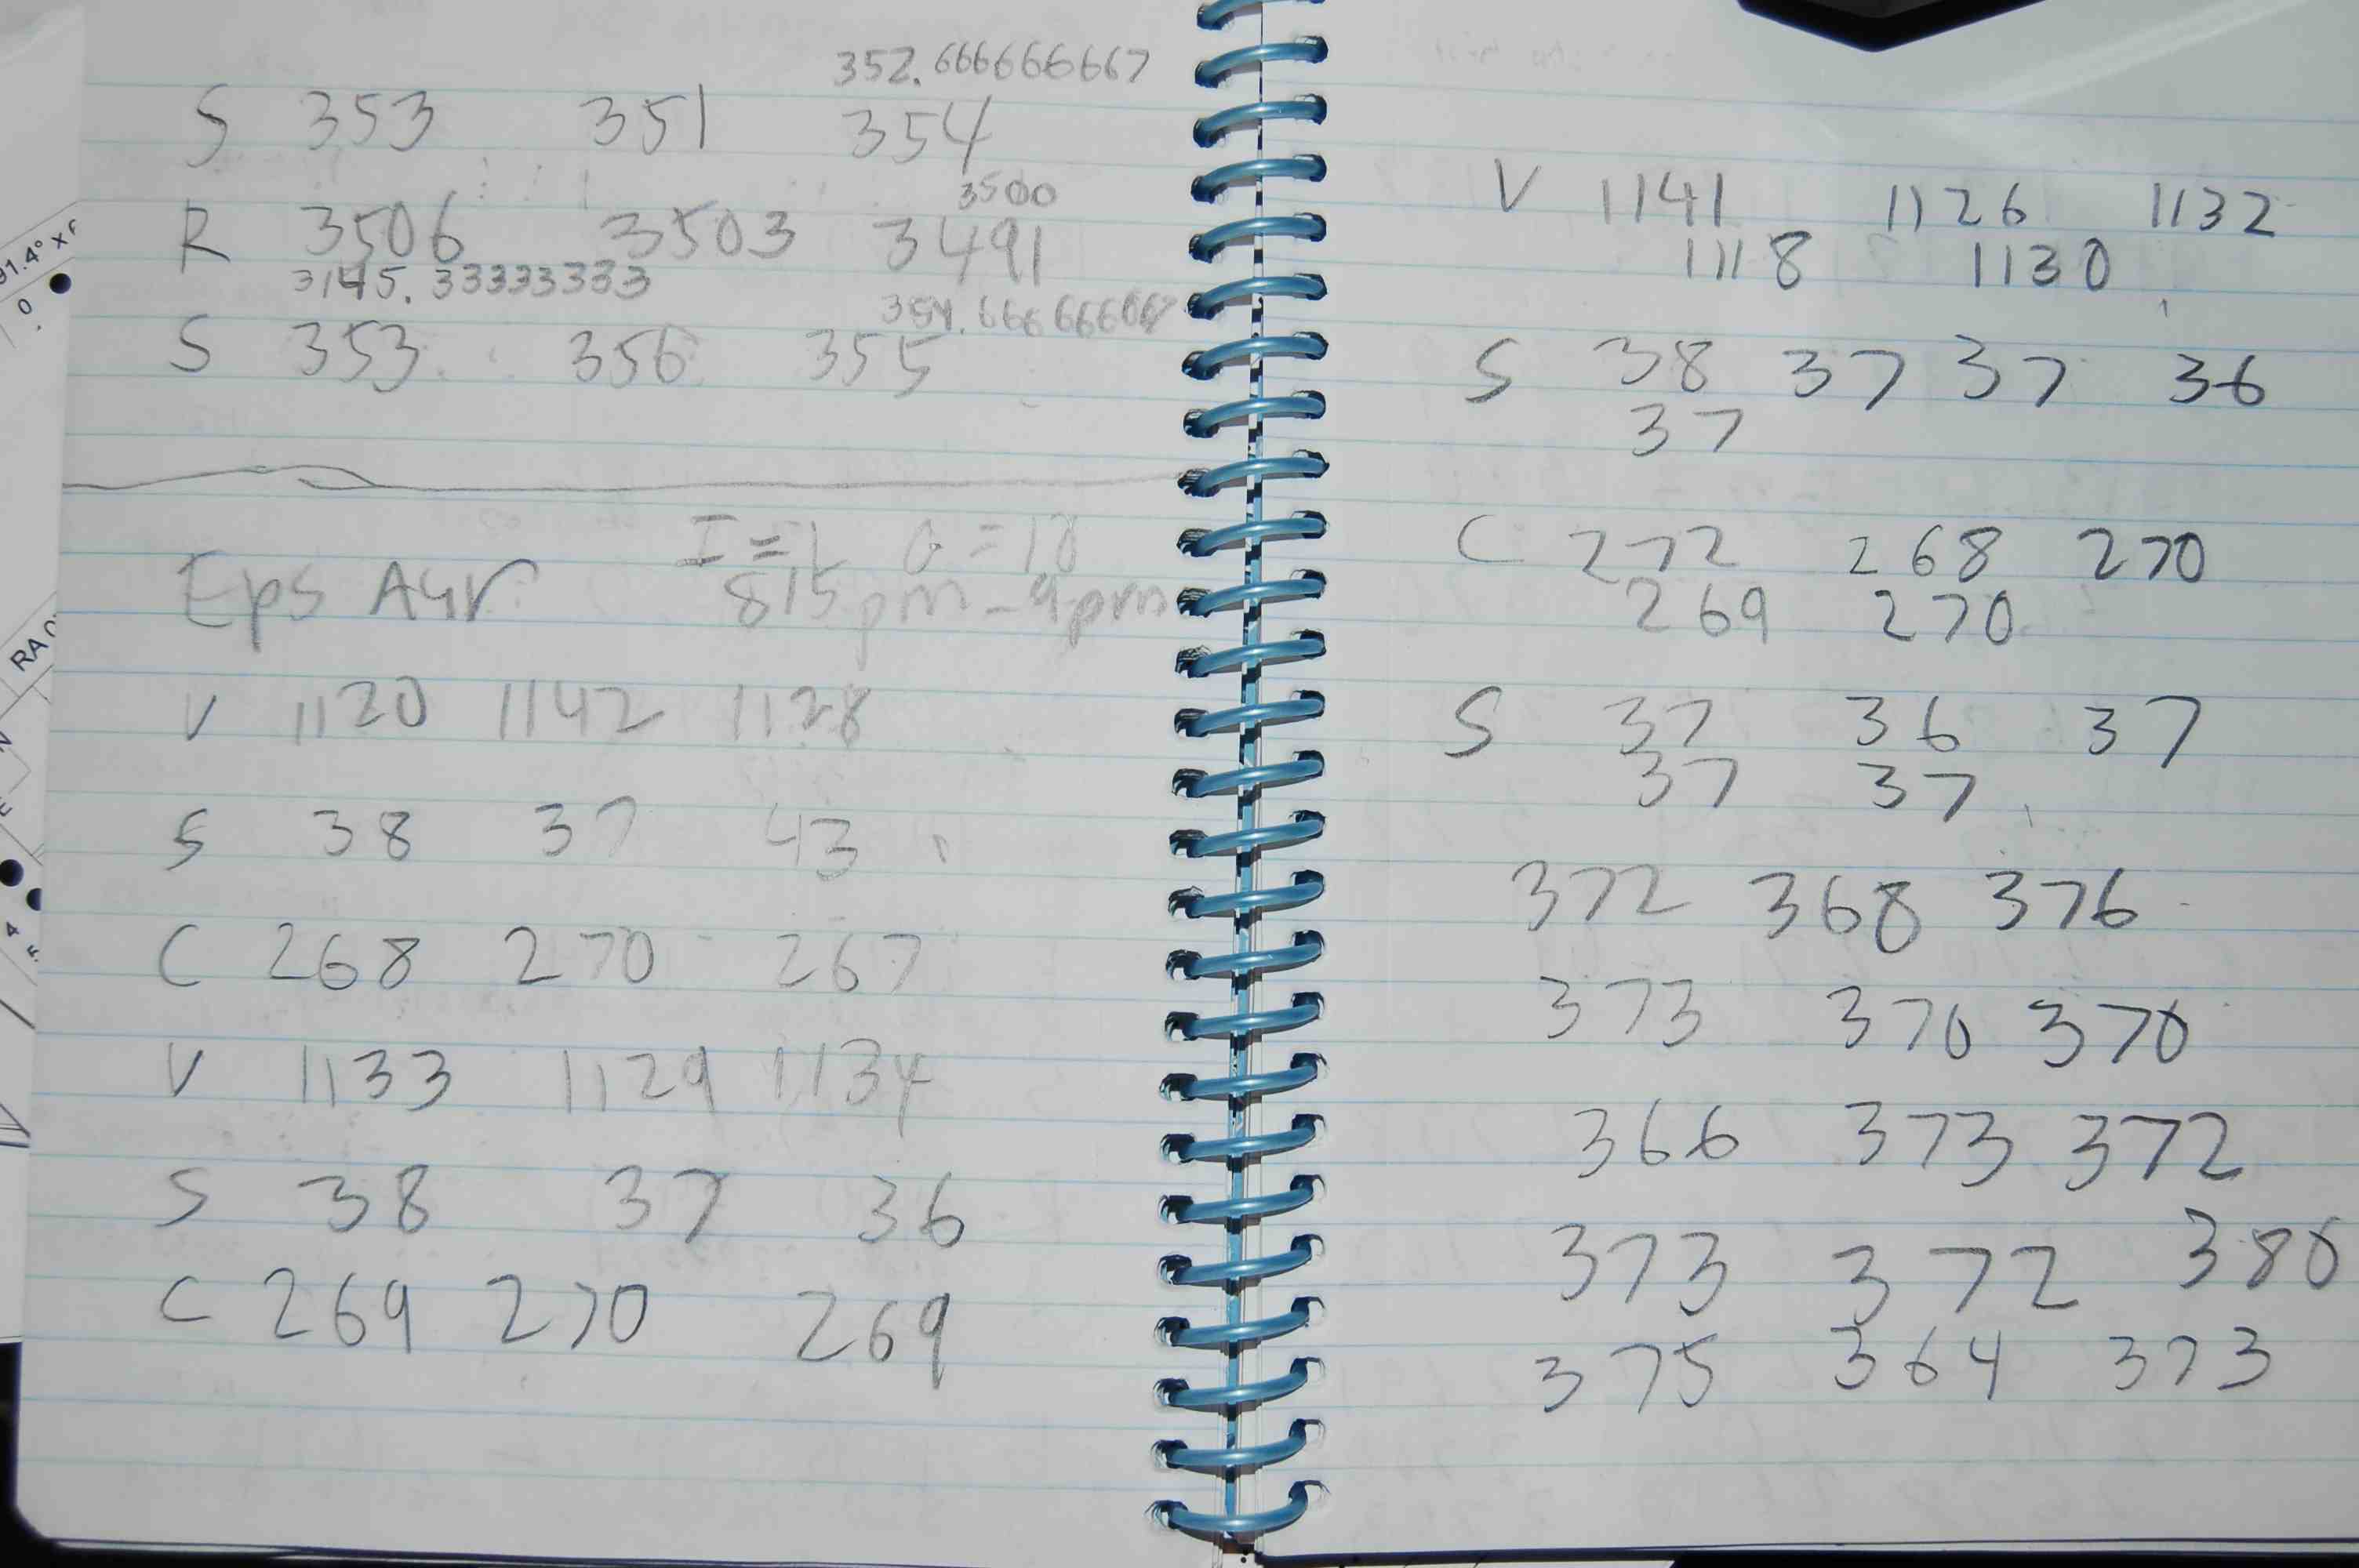 352.666666667
S 353 351 354
3500
R 3506 3503 3491
3145.33333333
354.66666666
S 353 356 355
Eps Aur I=1 G=10
815pm-9pm
V 1120 1142 1128
S 38 37 43
C 268 270 267
V 1133 1129 1134
S 38 37 36
C 269 270 269
V 1141 1126 1132
1118 1130
S 38 37 37 36
37
C 272 268 270
269 270
S 37 36 37
37 37
372 368 376
373 370 370
366 373 372
373 372 380
375 364 373
91.4° x F
0
RA